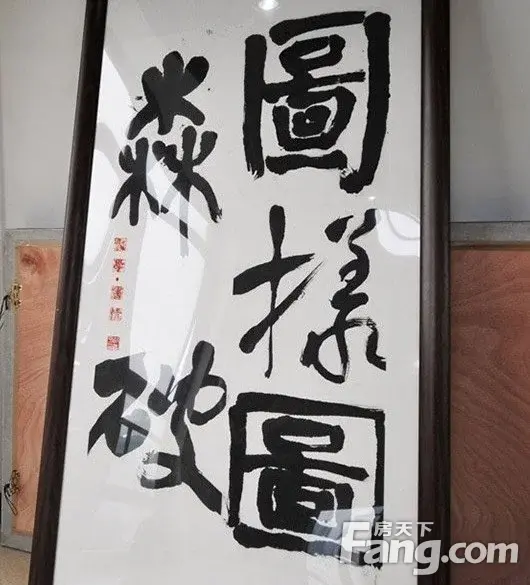 圖樣圖
森破
房天下
Fang.com